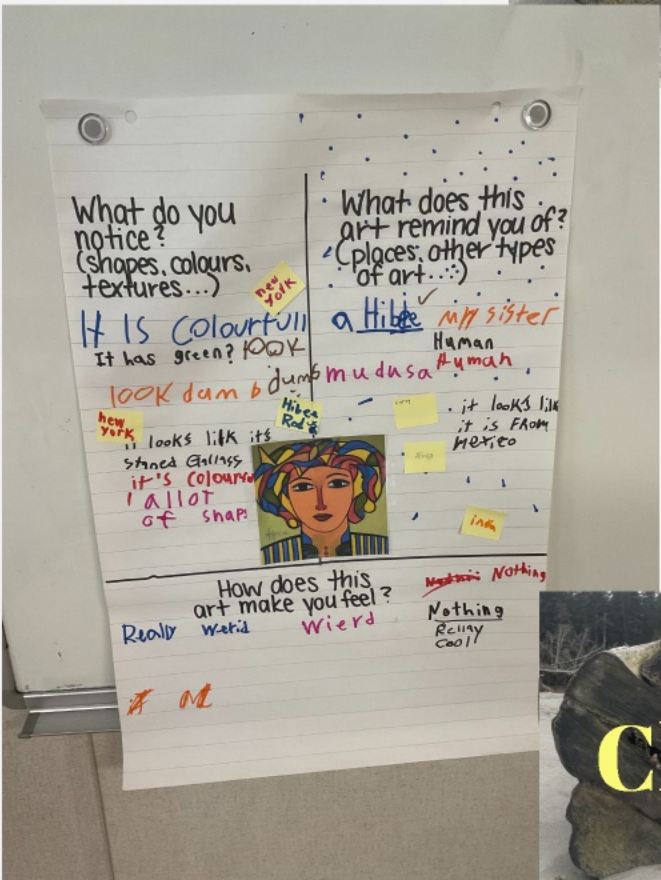 What do you
notice?
(shapes, colours,
textures...)
new
york
It Is Colourfull
It has green? look
look dumb dumb
new
york
it looks lik it's
staned Gallass
it's Colourfu
allot
of shap
What does this
art remind you of?
(places, other types
of art...)
a my sister
Human
Human
mudusa
it looks lik
it is From
Mexico
How does this
art make you feel?
Nothing
Really werid
Wierd
Nothing
Rellay
Cool